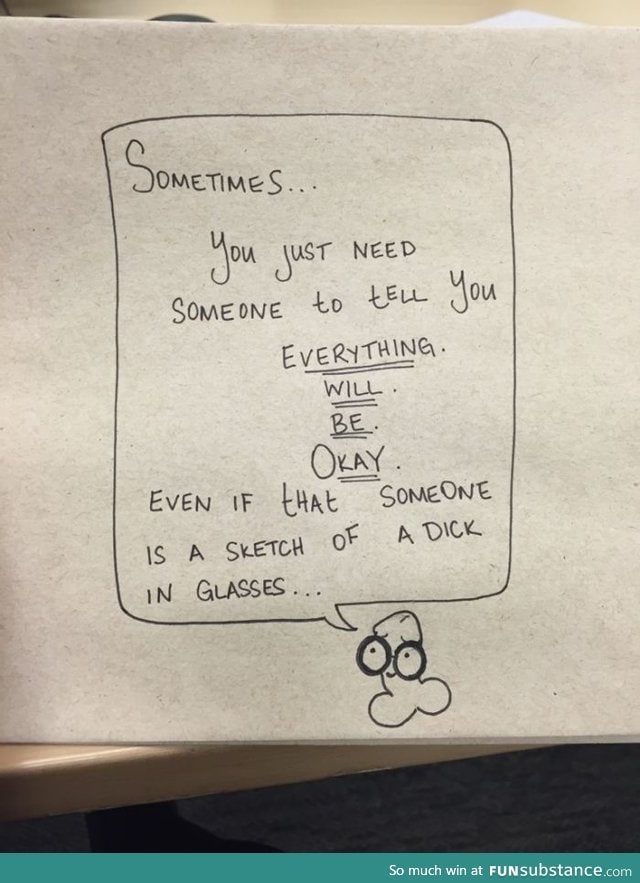 SOMETIMES...
You just NEED
SOMEONE to tELL You
EVERYTHING.
WILL.
BE.
OKAY.
EVEN IF tHAt SOMEONE
IS A SKETCH OF A DICK
IN GLASSES...
So much win at FUNsubstance.com